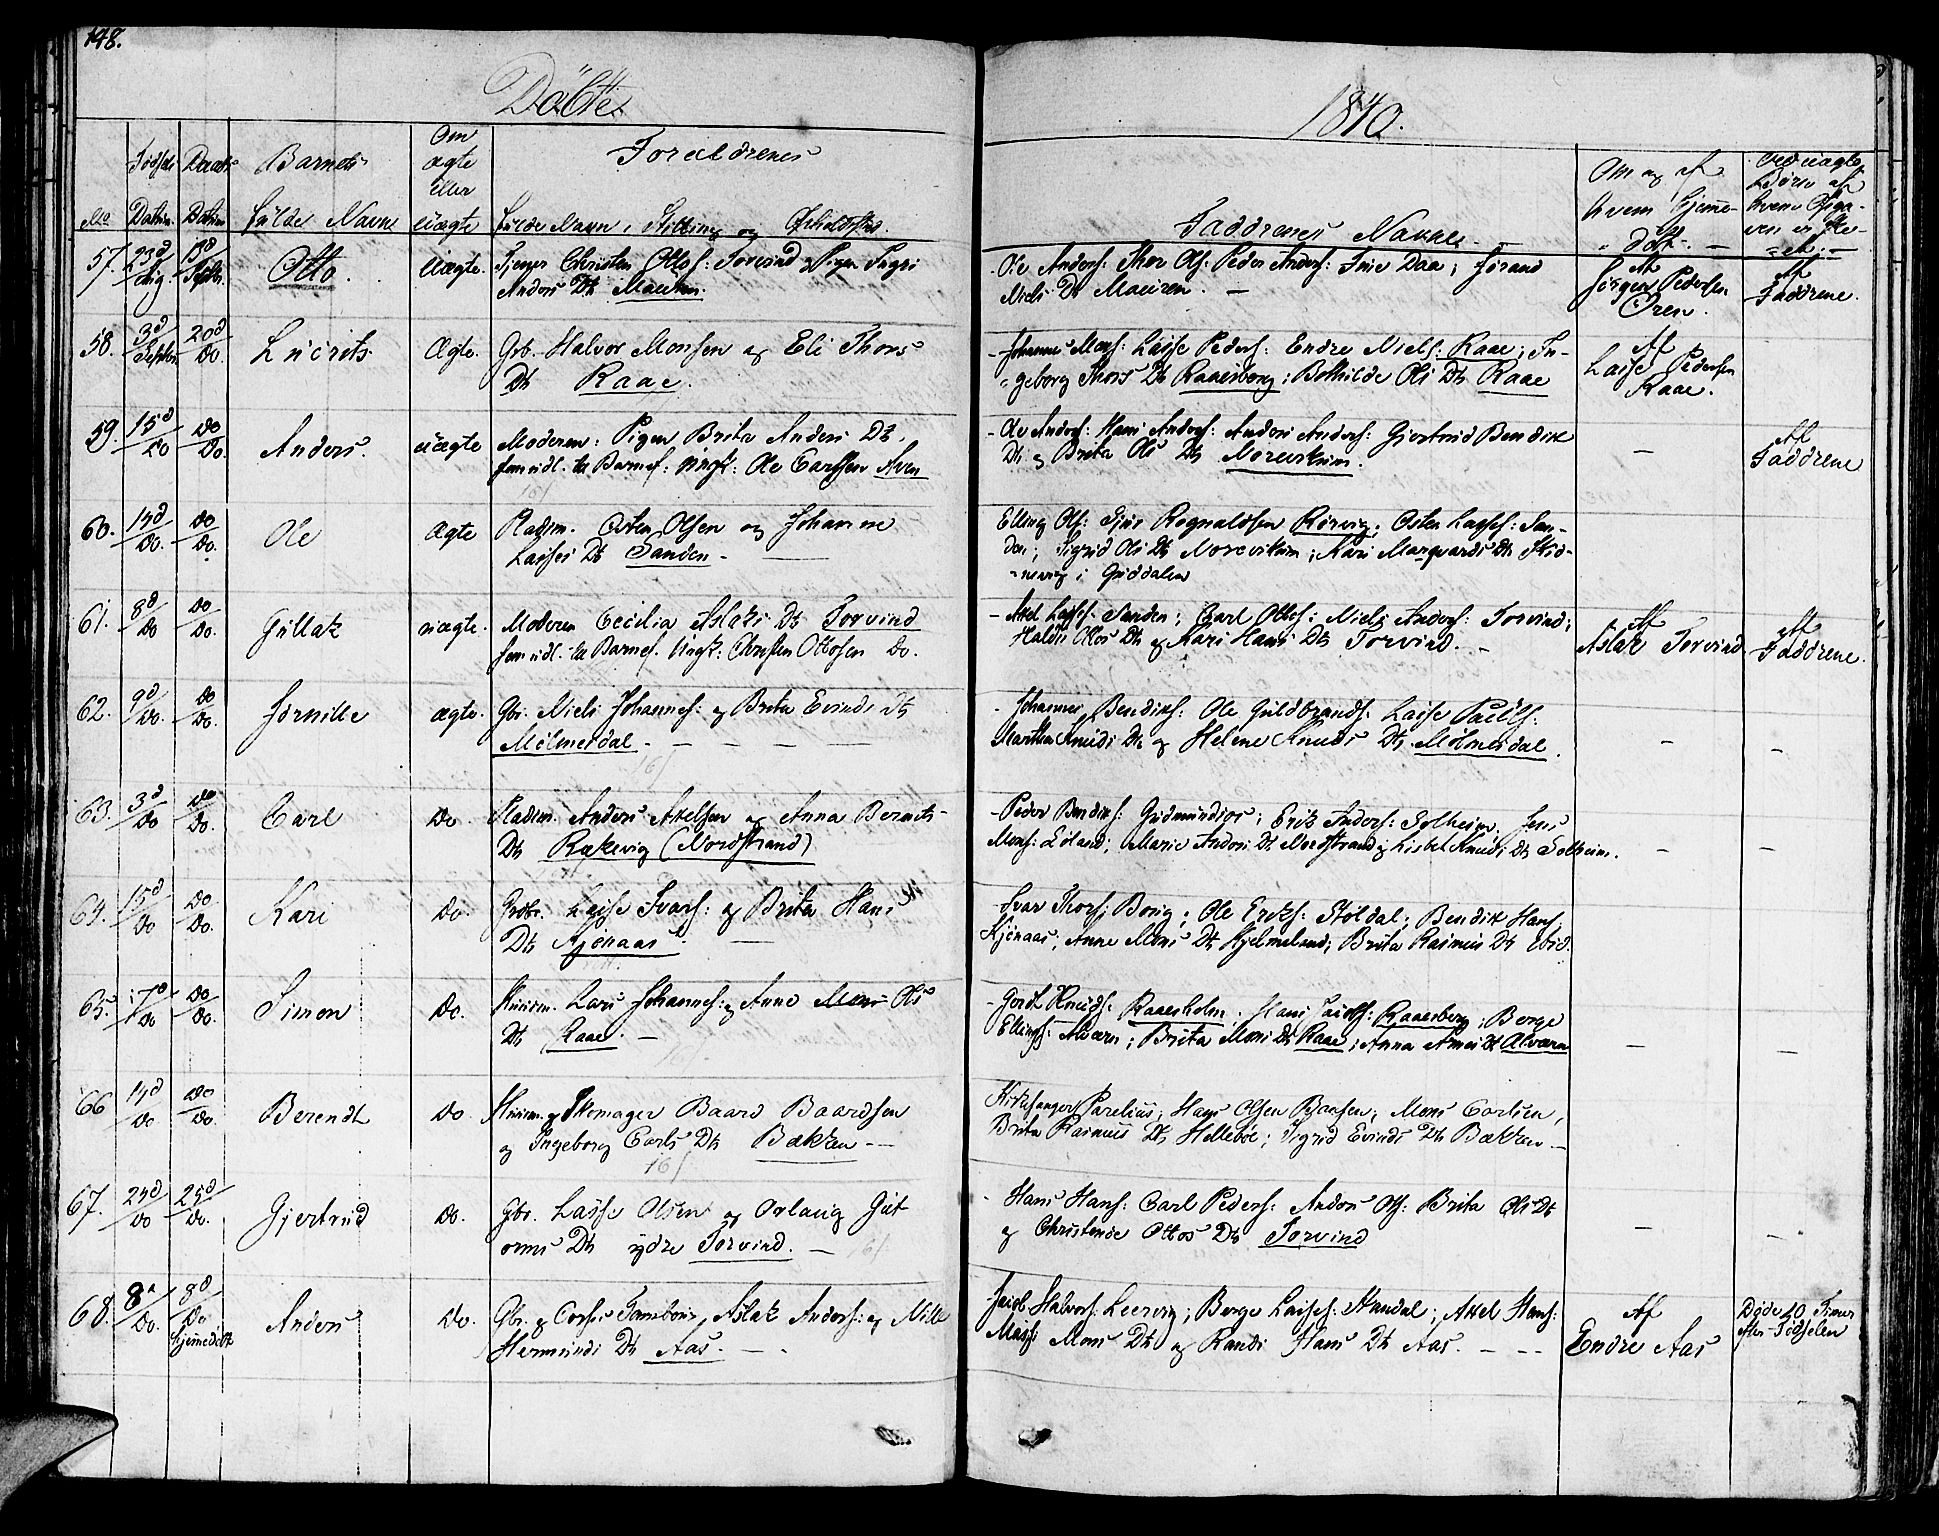 148.
Döbte
1840.
No Födsels Datum. Daabs Datum Barnets fulde Navn Om ægte eller uægte Forældrenes fulde Navn, Stilling og Opholdsted.
Faddrenes Navne.
Om og af hvem hjemmedöbt.
Ved uægte Börn af hvem Opgaven er skeet.
57. 23d/Aug. 13d/Septbr. Otto. Uægte. Tjener Christen Ottos: Torvind og Pigen Sigri
Anders Dt. Mauren.
- Ole Anders: Thor Ols: Peder Anders: Daa;
Niels Dt. Mauren. -
Af Jörgen Pedersen Oren.
Af Faddrene.
58. 3d/Septbr 20d/Do. Lucrits. Ægte. Grb. Halvor Monsen og Eli Thors
Dt. Raae.
- Johannes Mons: Lasse Peders: Endre Niels: Raae; In-
geborg Thors Dt. Raaesberg; Bothilde Ols Dt. Raae
Af Lasse Pedersen Raae.
59. 15d/Do Do/Do. Anders. uægte Moderen: Pigen Brita Anders Dt.
fem udl. til Barnef. Ungk: Ole Carlsen Aven
- Ole Anders: Hans Anders: Anders Anders: Gjertrud Bendix
Dt. og Brita Ols Dt. Norevikum.
-
Af Faddrene
60. 14d/Do. Do/Do. Ole Ægte Pladsm. Osten Olsen og Johanne
Lasses Dt. Sanden -
Elling Ols: Sjur Rognaldsen Rörvig; Osten Lasses: San-
den; Sigrid Ols Dt. Norevikum; Kari Marqvards Dt. Skid-
nevig i Guddalen
61. 8d/Do Do/Do. Gullak uægte. Moderen Cecilia Aslaks Dt. Torvind
fem udl. til Barnef. Ungk: Christen Ottosen Do.
- Axel Lasses: Sanden; Carl Ottos: Niels Anders: Torvind;
Haldis Ottos Dt. og Kari Hans Dt. Torvind. -
Af Aslak Torvind
Af Faddrene.
62. 9d/Do. Do/Do. Jörnille ægte. Gbr. Niels Johannes: og Brita Evinds Dt.
Mölmesdal. -
- Johannes Bendix: Ole Guldbrands: Lasse Pauls:
Martha Knuds Dt. og Helene Knuds Dt. Mölmesdal.
- -
63. 3d/Do Do/Do. Carl Do. Pladsm. Anders Axelsen og Anna Bernts
Dt. Rækevig (Nordstrand)
- Peder Bendix: Gudmundios; Erik Anders: Solheim; Jens
Mons: Eiland; Marie Anders Dt. Nordstrand og Lisbet Knuds Dt. Solheim.
- -
64. 15d/Do Do/Do. Kari Do. Grdbr. Lasse Ivars: og Brita Hans
Dt. Kjönaas. -
- Ivar Thors: Borig; Ole Eriks: Stöldal; Bendix Hans:
Kjönaas; Anne Mons Dt. Hjelmeland; Brita Rasmus Dt. ibid.
65. 17d/Do Do/Do. Simon Do. Huusm. Lars Johannes: og Anne Mons Ols
Dt. Raae. -
- Gerdt Knuds: Raaesholm. Hans Jacobs: Raaesberg; Börge
Ellings: Alværn; Brita Mons Dt. Raae; Anna Arnes Dt. Alværn
- -
66 14d/Do Do/Do. Berendt Do Huusm. og Skomager Baard Baardsen
og Ingeborg Carls Dt. Bækken -
Kirkesanger Parelius; Hans Olsen; Mons Carlsen,
Brita Rasmus Dt. Helleböe; Sigrid Evinds Dt. Bækken -
67. 24d/Do 25d/Do. Gjertrud Do. Gbr. Lasse Olsen og Orlaug Gut-
orms Dt. ydre Torvind. -
- Hans Hans: Carl Peders: Anders Ols: Brita Ols Dt.
og Christence Ottos Dt. Torvind
- -
68. 8d/Do. 8d/Do hjemmedöbt Anders Do. Gbr. og Corps Tambour Aslak Anders: og Nille
Hermunds Dt. Aas. -
- Jacob Halvors: Leervig; Börge Lasses: Stendal; Axel Hans:
Mons Dt. og Randi Hans Dt. Aas. -
Af Endre Aas
Döde 10 Timer efter Födselen